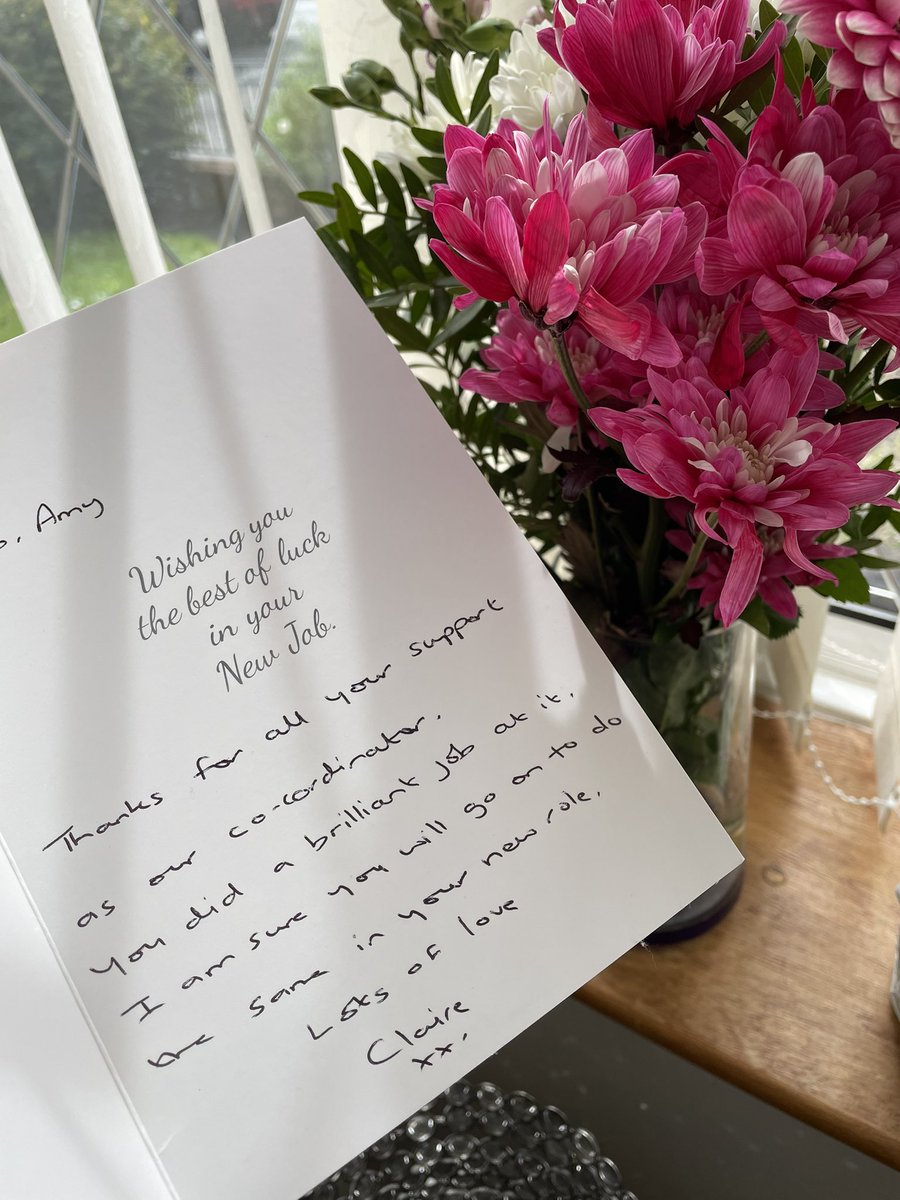 o, Amy
Wishing you
the best of luck
in your
New Job.
Thanks for all your support
as our co-cordinator.
You did a brilliant job at it.
I am sure you will go on to do
the same in your new role.
Lots of love
Claire
xx.